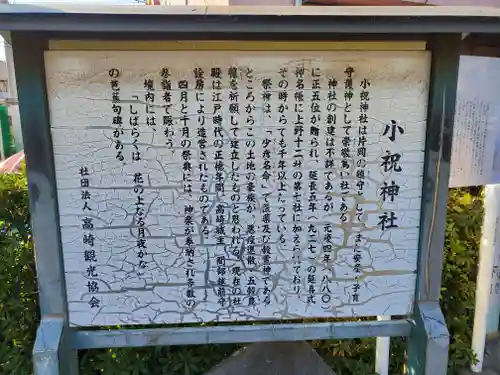 小祝神社
小祝神社は片岡の鎮守として、また安産・子育
守護神として崇敬高い社である。
神社の創建は不詳であるが、元慶四年(八八〇)
に正五位が贈られ、延長五年(九二七)の延長式
神名帳に上野十二社の第七社に加えられており、
その時からでも千年以上たっている。
祭神は、「少彦名命」で医薬及び牧畜神である
ところからこの土地の豪族が、悪疫退散、五穀豊
穣を祈願して建立したものと思われる。現在の社
殿は江戸時代の正徳年間に高崎城主、間部越前守
詮房により造営されたものである。
四月と十月の祭典には、神楽が奉納され多数の
参詣者で賑わう。
境内には、
「しばらくは 花の上なる月夜かな」
の芭蕉句碑がある。
社団法人 高崎観光協会